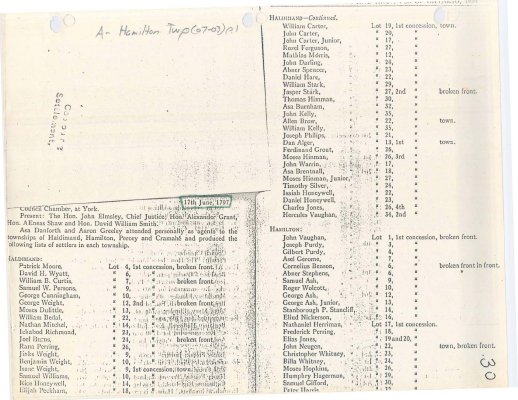 A- Hamilton Twp (07-02) p1
17th June, 1797
Council Chamber, at York.
Present: The Hon. John Elmsley, Chief Justice; Hon. Alexander Grant,
Hon. Æneas Shaw and Hon. David William Smith.
Asa Danforth and Aaron Greeley attended personally as agents to the
townships of Haldimand, Hamilton, Percey and Cramahé and produced the
following lists of settlers in each township.
HALDIMAND:
Patrick Moore, Lot 4, 1st concession, broken front.
David H. Wyatt, " 6, " "
William B. Curtis, " 7, " broken front.
Samuel W. Persons, " 9, "
George Cunningham, " 10, "
George Weight, " 12, 2nd broken front.
Moses Dulittle, " 13, "
William Bedal, " 22, "
Nathan Mitchel, " 14, "
Ichabod Richmond, " 23, "
Joel Burns, " 24, " broken front.
Rana Persing, " 26, "
Jinks Weight, " 9,
Benjamin Weight, " 10,
Isaac Weight, " 9, 1st concession, town.
Samuel Williams, " 10,
Rice Honeywell, " 14,
Elijah Peckham, " 18,
HALDIMAND—Continued.
William Carter, Lot 19, 1st concession, town.
John Carter, " 20, "
John Carter, Junior, " 17, "
Rozel Ferguson, " 27, "
Mathias Morris, " 12, "
John Darling, " 24, "
Abner Spencer, " 23, "
Daniel Hare, " 22, "
William Stark, " 29, "
Jasper Stark, " 27, 2nd " broken front.
Thomas Hinman, " 30, "
Asa Burnham, " 32, "
John Kelly, " 35, "
Allen Brow, " 22, " town.
William Kelly, " 35, "
Joseph Philips, " 21, "
Dan Alger, " 13, 1st " town.
Ferdinand Grout, " 26, "
Moses Hinman, " 26, 3rd "
John Warrin, " 17, "
Asa Brentnall, " 18, "
Moses Hinman, Junior, " 27, "
Timothy Silver, " 24, "
Isaiah Honeywell, " 22, "
Daniel Honeywell, " 23, "
Charles Jones, " 26, 4th "
Hercules Vaughan, " 34, 2nd "
HAMILTON:
John Vaughan, Lot 1, 1st concession, broken front.
Joseph Purdy, " 3, "
Gilbert Purdy, " 4, "
Axel Gerome, " 5, "
Cornelius Benson, " 6, " broken front in front.
Abner Stephens, " 6, "
Samuel Ash, " 9, "
Roger Walcott, " 10, "
George Ash, " 12, "
George Ash, Junior, " 14, "
Stanborough P. Stancliff, " 14, "
Elied Nickerson, " 16, "
Nathaniel Herriman, Lot 17, 1st concession.
Frederick Persing, " 18, "
Elias Jones, " 19 and 20, "
John Neugen, " 21, " town, broken front.
Christopher Whitney, " 23, "
Billa Whitney, " 25, "
Moses Hopkins, " 26, "
Humphry Hagerman, " 29, "
Samuel Gifford, " 30, "
Peter Harris,
30